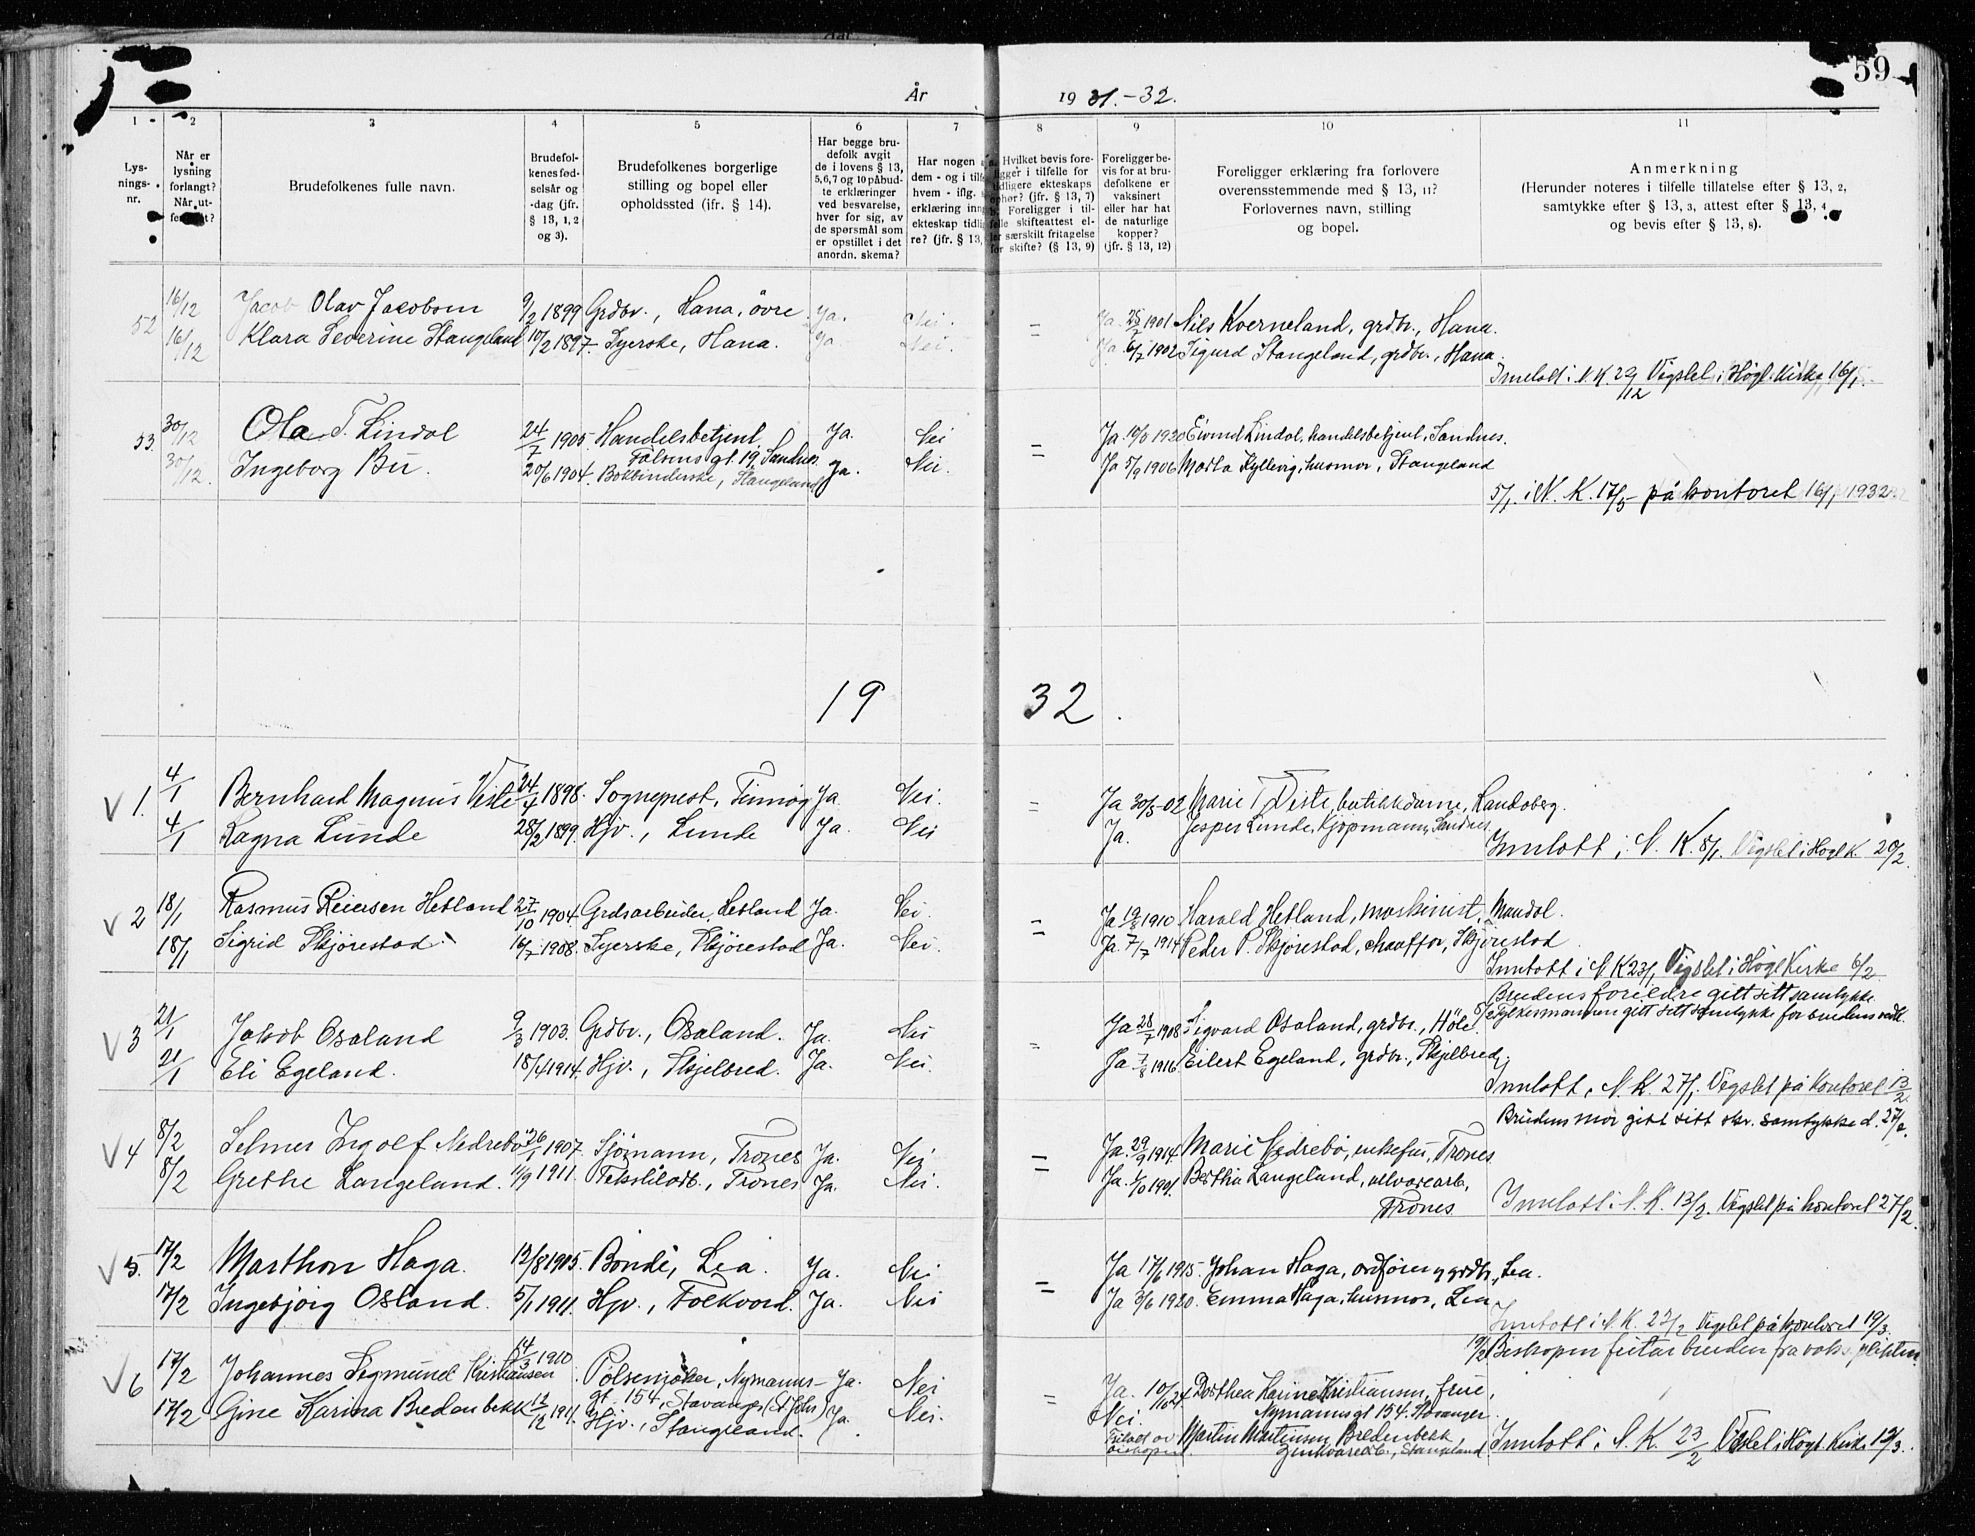 59
År 1931.-32.
1 2 3 4 5 6 7 8 9 10 11
Lysnings-nr.
Når er lysning forlangt? Når ut-
Brudefolkenes fulle navn.
Brudefolkenes fødselsår og -dag (jfr. § 13, 1, 2 og 3).
Brudefolkenes borgerlige stilling og bopel eller opholdssted (ifr. § 14).
Har begge brudefolk avgit de i lovens § 13, 5,6,7 og 10 påbudte erklæringer ved besvarelse, hver for sig, av de spørsmål som er opstillet i det anordn. skema?
Har nogen
dem - og i
hvem - iflg.
erklæring
ekteskap
re? (jfr. § 13,
Hvilket bevis fore-
i tilfelle for
ekteskaps
(jfr. § 13, 7)
Foreligger i til-
skifteattest el-
særskilt fritagelse
for skifte? (§ 13, 9)
Foreligger bevis for at brudefolkene er vaksinert eller har hat de naturlige kopper? (jfr. § 13, 12)
Foreligger erklæring fra forlovere overensstemmende med § 13, 11? Forlovernes navn, stilling og bopel.
Anmerkning
(Herunder noteres i tilfelle tillatelse efter § 13, 2, samtykke efter § 13, 3, attest efter § 13, 4 og bevis efter § 13, 8).
52 16/12 Jacob Olav Jacobsen 9/2 1899 Grdbr., Hana, övre Ja. Nei. = Ja 1901 Nils Kverneland, grdbr., Hana.
16/12 Klara Severine Stangeland 10/2 1897. Syerske, Hana. Ja. Nei. Ja 6/7 1902 Sigurd Stangeland, grdbr., Hana.
Innlatt i N.K. 29/12 Vigslet i Högl. Kirke 16/1.
53. 30/12 Ola T. Lindal 24/7 1905. Handelsbetjent, Ja. Nei = Ja 1920 Eivind Lindal, handelsbetjent, Sandnes.
gt. 19, Sandnes
30/12. Ingeborg Bu. 20/6 1904. Bokbinderske, Stangeland Ja. Nei. Ja 5/9 1906 Marta Kyllevig, husmor, Stangeland
5/1. i N. K. på kontoret 16/1 1932
19 32.
V 1. 4/1 Bernhard Magnus Viste 24/4 1898. Sogneprest, Finnøy Ja. Nei. = Ja 30/5-02 Marie T. Viste, butikkdame, Randaberg.
4/1 Ragna Lunde 28/2 1899. Hjv., Lunde Ja. Nei Ja. Jesper Lunde, kjøpmann, Sandnes
Innlatt i N. K. 8/1. Vigslet i Högl K. 20/2.
V 2 18/1 Rasmus Reiersen Hetland 27/10 1904. Grdsarbeider, Hetland Ja. Nei. = Ja 1910 Harald Hetland, maskinist, Mandal.
18/1 Sigrid Skjørestad. 16/7 1908. Syerske, Skjørestad Ja. Nei. Ja 7/7 1914 Peder P. Skjørestad, chauffør, Skjørestad
Innlatt i N K 23/1 Vigslet i Högl Kirke 6/2
Brudens foreldre gitt sitt samtykke.
Fylkesmannen gitt sitt samtykke for brudens vedk.
V 3 21/1 Jakob Osaland 9/3 1903. Grdbr., Osaland. Ja. Nei = Ja 28/7 1908 Sigvard Osaland, grdbr., Höle
21/1 Eli Egeland. 18/4 1914. Hjv., Skjelbred. Ja. Nei. Ja 7/8 1916 Eilert Egeland, grdbr., Skjelbred.
Innlatt i N. K. 27/1. Vigslet på kontoret 13/2.
Brudens mor gitt sitt skr. samtykke d.
V 4 8/2 Selmer Ingolf Nedrebö 1907. Sjømann, Trones Ja. Nei = Ja. 29/9 1914. Marie Nedrebö, enkefru, Trones
8/2 Grethe Langeland. 11/9 1911. Tekstilarb., Trones Ja. Nei. Ja. Berthia Langeland, ullvarearb., Trones
Innlatt i N. K. 13/2. Vigslet på kontoret 27/2.
V 5. 17/2 Marthon Haga. Bonde, Lea. Ja. Nei = Ja 17/6 1915. Johan Haga, ordfører og grdbr., Lea.
17/2 Ingebjørg Osland. 5/1 1911. Hjv., Folkvord. Ja. Nei Ja 3/6 1920. Emma Haga, husmor, Lea
Innlatt i N.K. 23/2 Vigslet på kontoret 19/3.
Biskopen fritar bruden fra vaks. plikten
V 6 17/2 Johannes Sigmund Kristiansen 14/3 1910. Pölsemaker, Nymanns- Ja. Nei = Ja. Dorthea Karine Kristiansen, frue,
gt. 154, Stavanger (St. Johs) Nymannsgt 154. Stavanger.
17/2 Gine Karina Bredenbekk 12/12 1911. Hjv., Stangeland. Ja. Nei. Nei. Martin Martinsen Bredenbekk,
Fritatt av biskopen. Stangeland
Innlatt i N. K. 23/2 Vigslet i Högl Kirke 12/3.